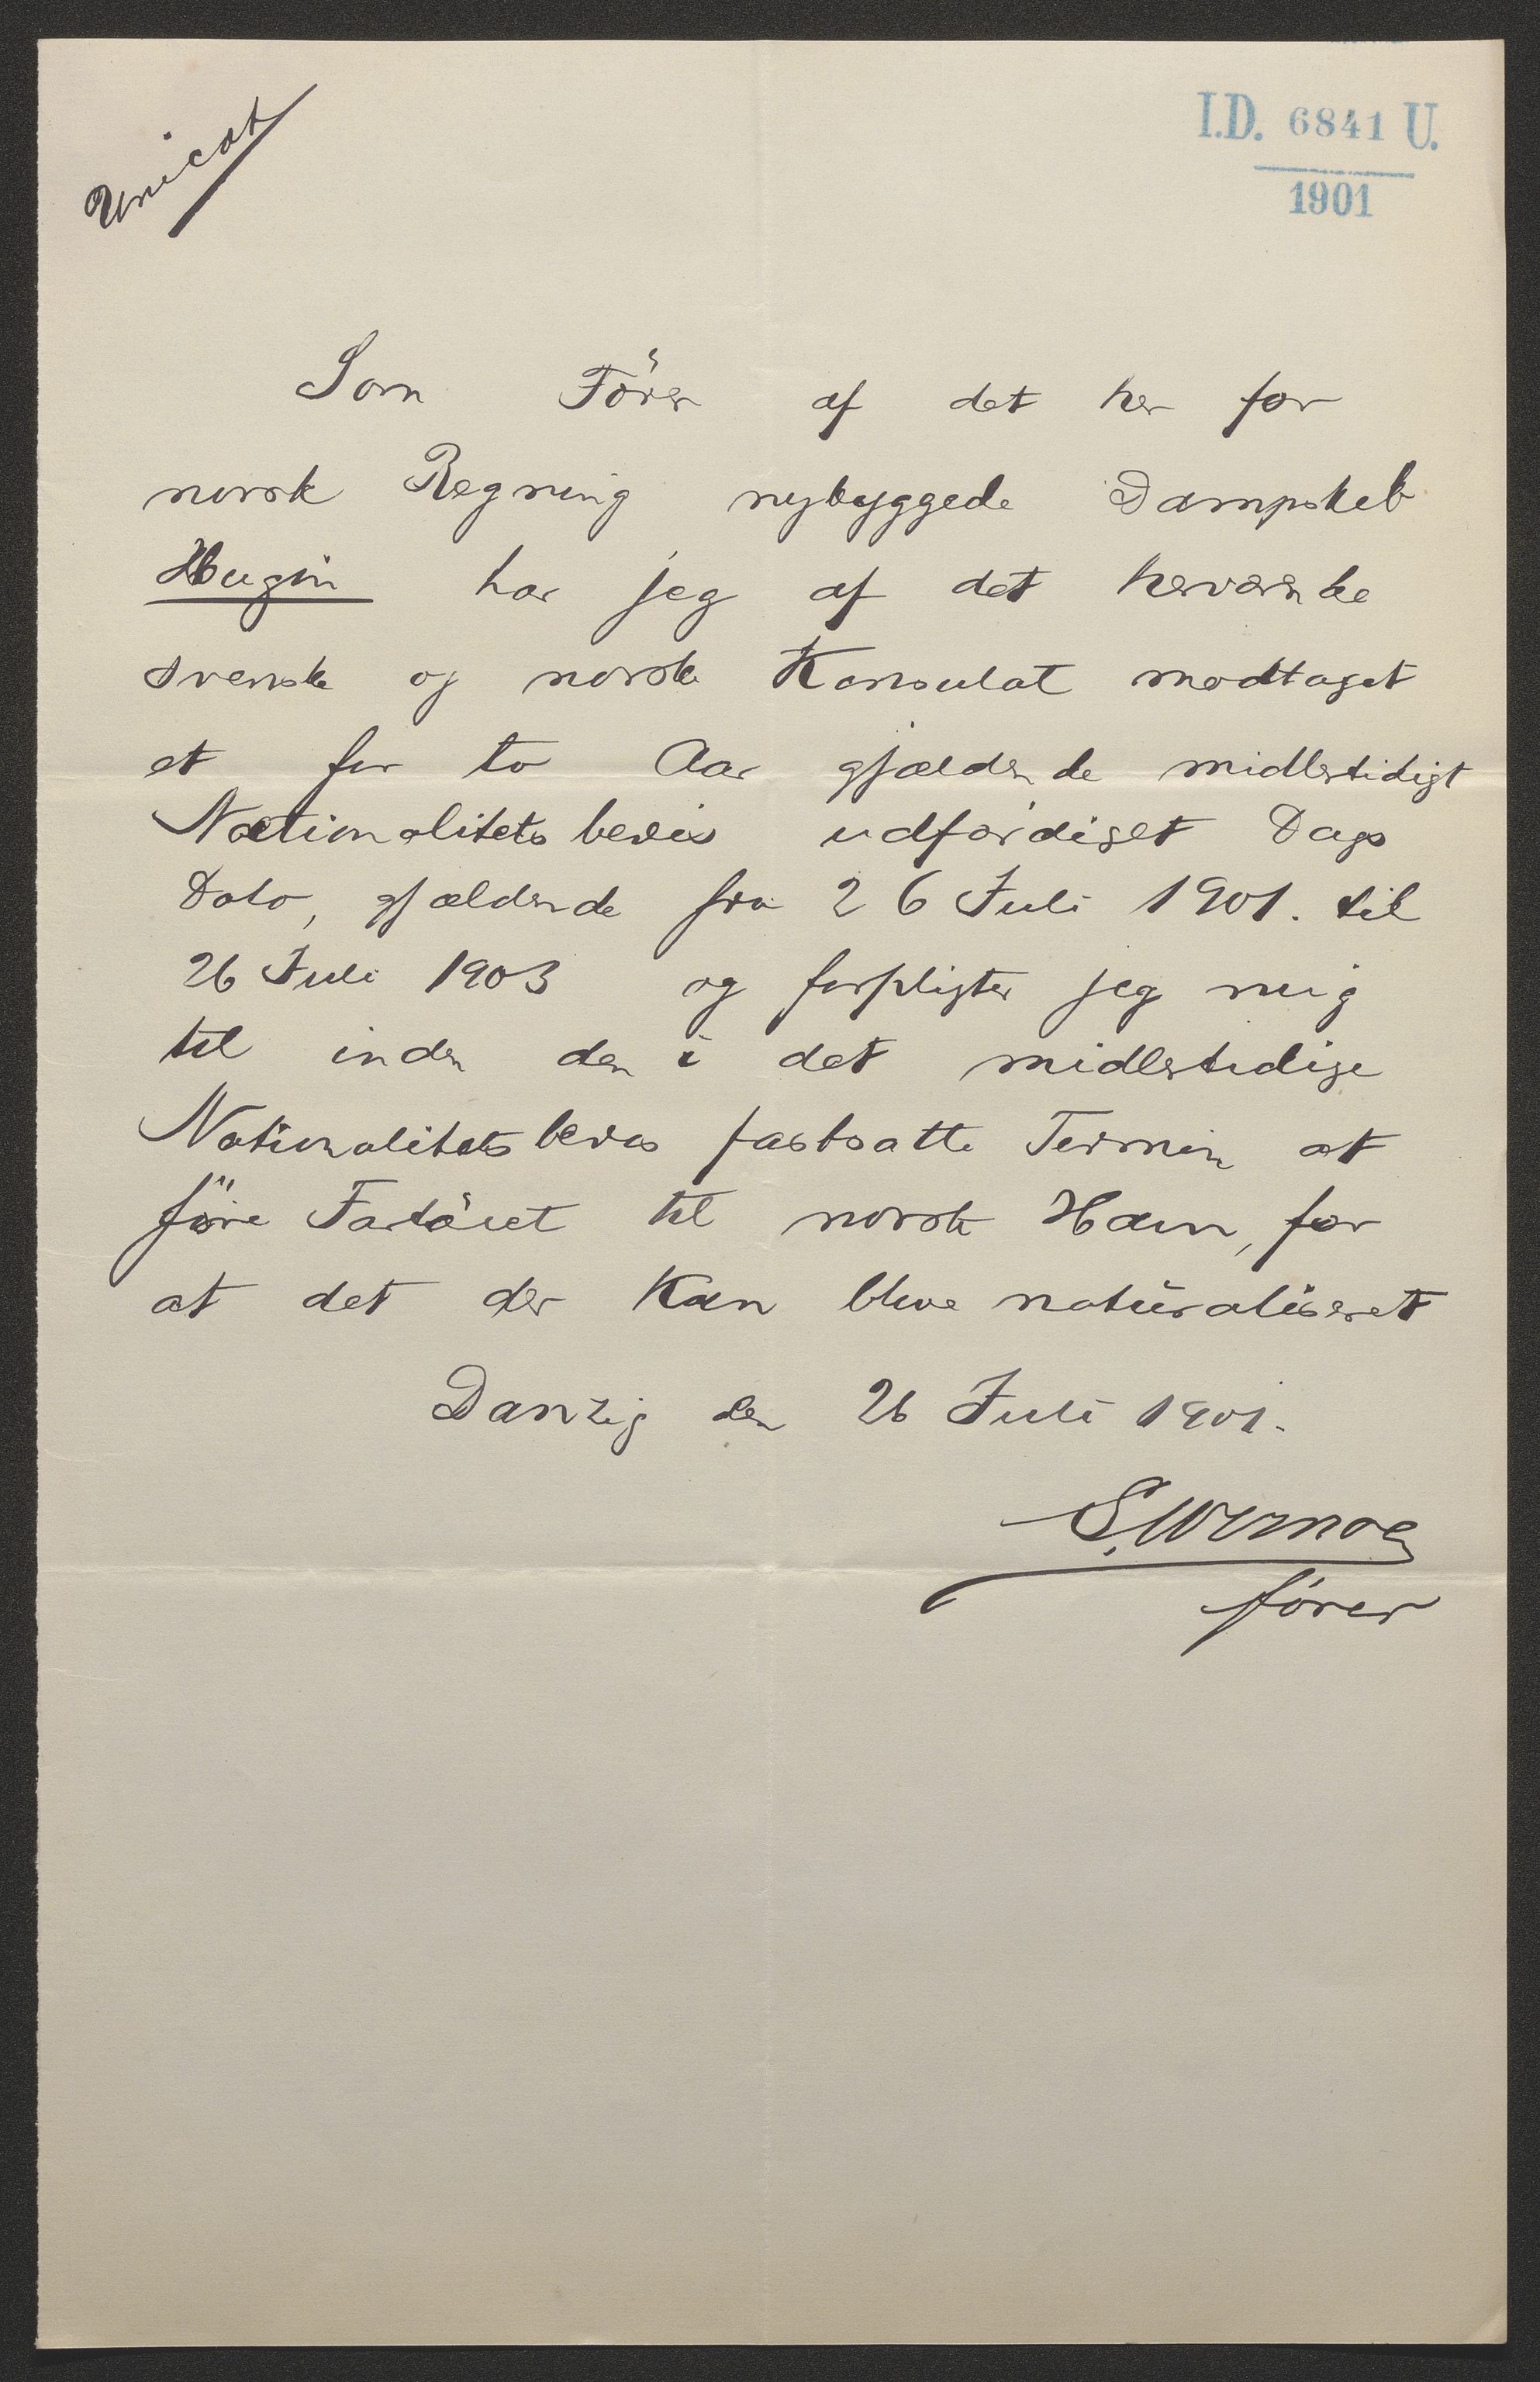 Unicat
I.D. 6841 U.
1901
Som Förer af det her for
norsk Regning nybyggede Dampskeb
Hugin har jeg af det herværende
svenske og norske Konsulat modtaget
et for to Aar gjældende midlertidigt
Nationalitetsbevis udfærdiget Dags
Dato, gjældende fra 26 Juli 1901. til
26 Juli 1903 og forpligter jeg mig
til inden den i det midlertidige
Nationalitetsbevis fastsatte Termin at
före Fartöiet til norsk Havn, for
at det der kan blive naturaliseret
Danzig den 26 Juli 1901.
fører